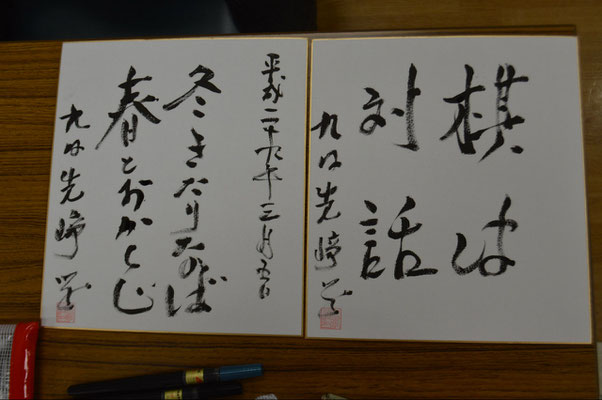 棋は
対話
九段 先崎 学
平成二十九年三月五日
冬きたりなば
春とおからじ
九段 先崎 学